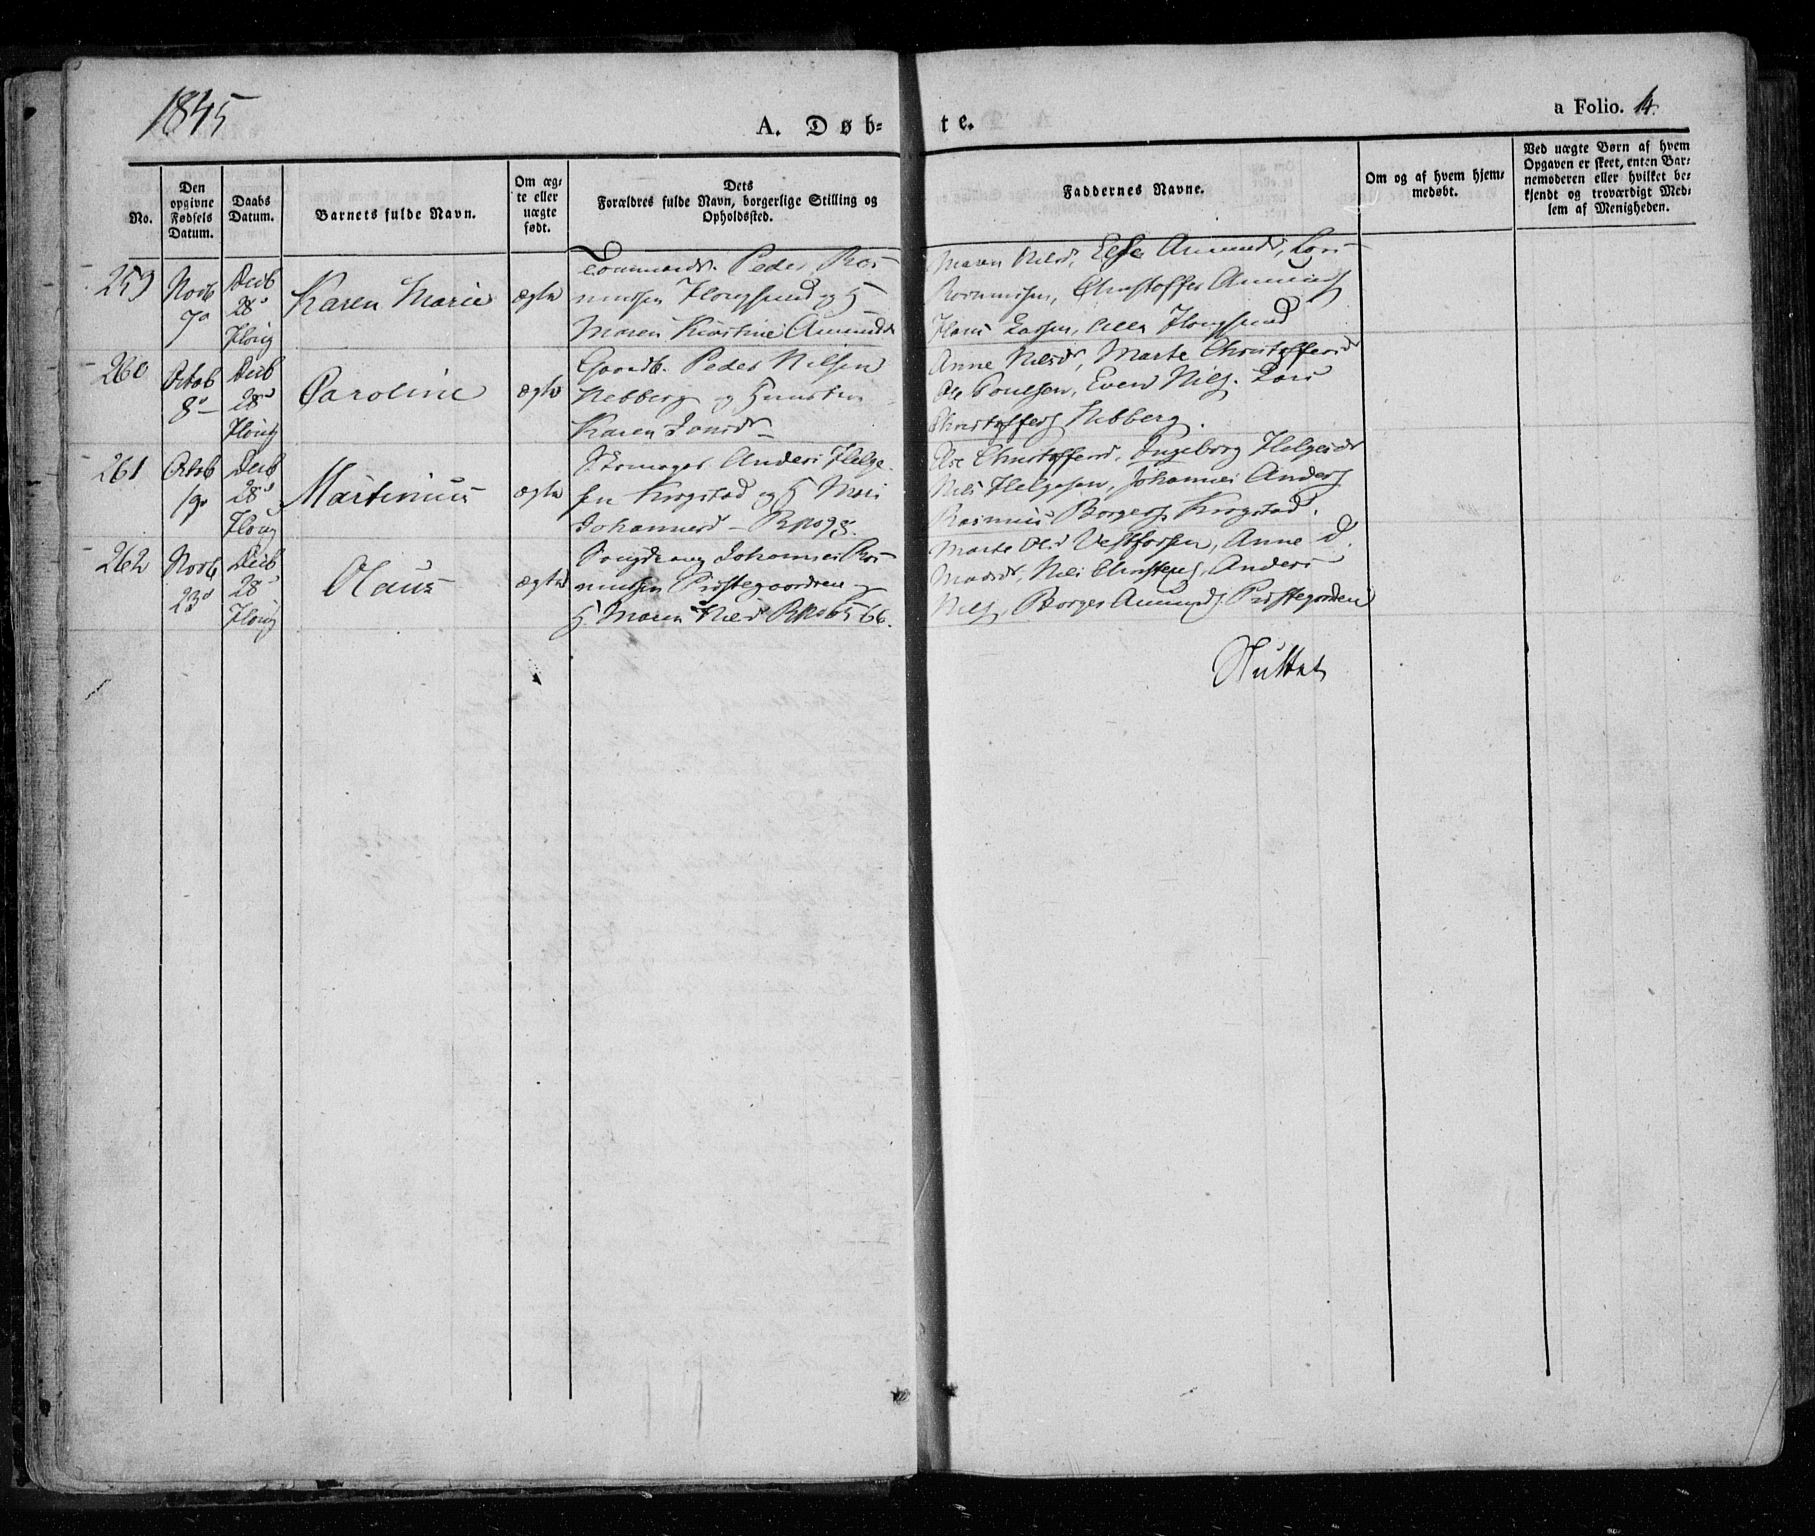 1845
A. Døb-
te.
a Folio. 14.
No.
Den opgivne Fødsels Datum.
Daabs Datum.
Barnets fulde Navn.
Om ægte eller uægte født.
Dets Forældres fulde Navn, borgerlige Stilling og Opholdssted.
Faddernes Navne.
Om og af hvem hjemmedøbt.
Ved uægte Børn af hvem Opgaven er skeet, enten Barnemoderen eller hvilket bekjendt og troværdigt Medlem af Menigheden.
259
Novb
7
Decb
28
Houg
Karen Marie
ægte
Peder Ras-
mussen Hougsund og H
Maren Kirstine Amundsd
Maren Nilsd, Else Amundsd, Lars
Rasmussen, Christoffer Amunds
Hans Larsen, alle Hougsund
260
Octob
8
Decb
28
Houg
Caroline
ægte
Gaardb. Peder Nilsen
Nebberg og Hustru
Karen Jonsdr
Anne Nilsdr, Marte Christoffersd
Ole Poulsen, Even Nils. Lars
Christoffers Nebberg.
261
Octob
19
Decb
28
Houg
Martinius
ægte
Skomager Anders Helge-
sen Krogstad og H Mari
Johannesd
Else Christoffersd, Ingeborg Helgesdr
Nils Helgesen, Johannes Anders
Rasmus Borgers Krogstad.
262
Novb
23
Decb
28
Houg
Olaus
ægte
Johannes Ras-
mussen Præstegaardseie
H Maren Nilsd
Marte Olsd Vestfossen, Anne
Madsdr, Nils Christens, Anders
Nils, Borger Amunds. Præstegarden